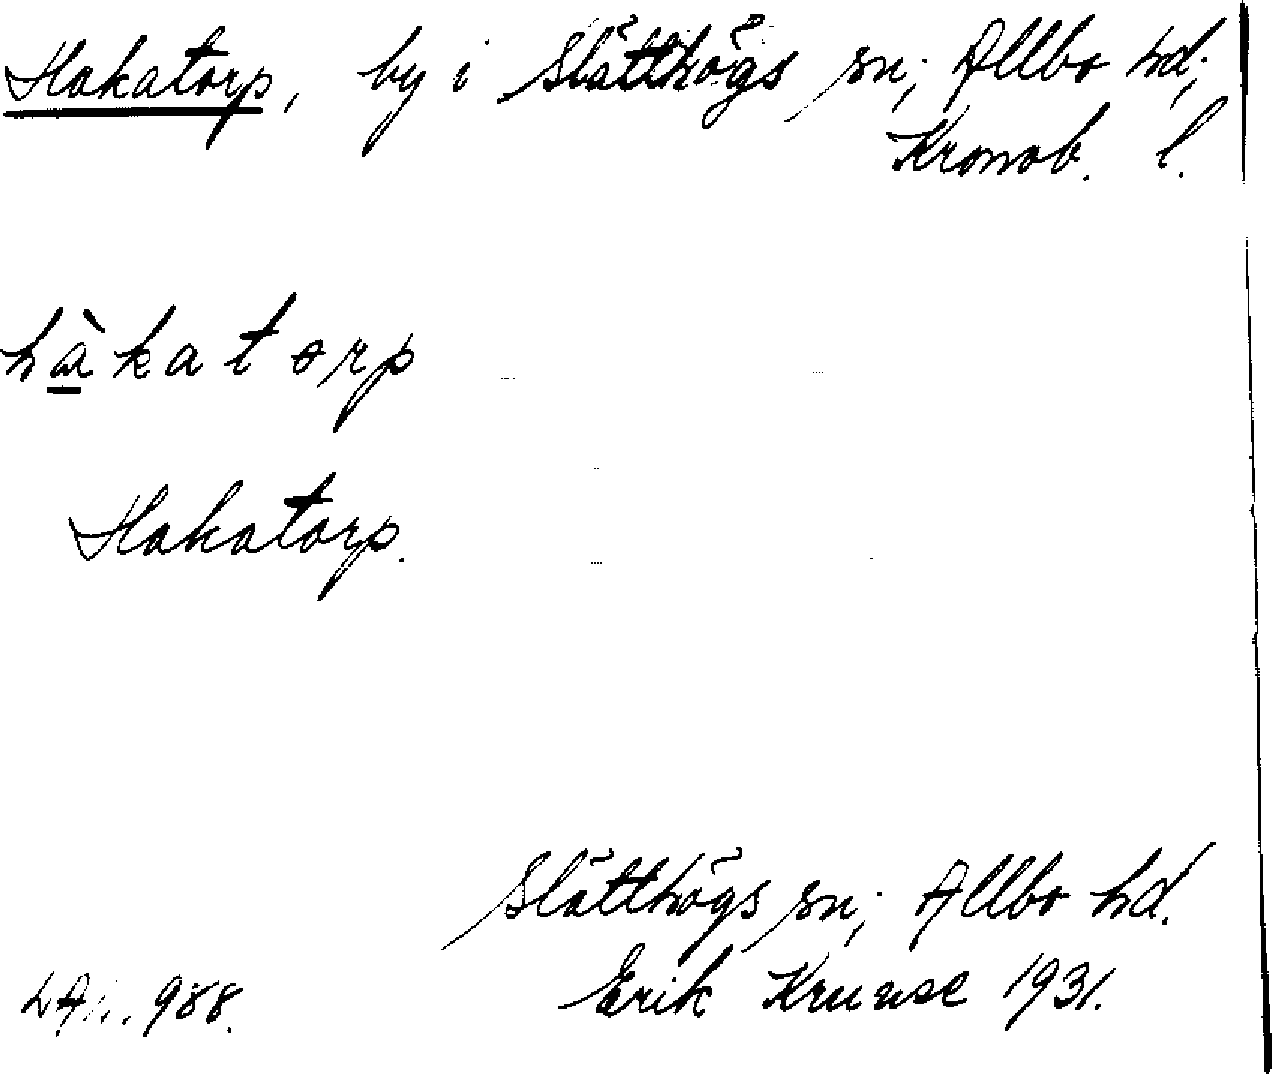 Hakatorp, by i Slätthögs sn; Allbo hd;
Kronob. l.
hàkatorp
Hakatorp.
Slätthögs sn; Allbo hd.
Erik Kruuse 1931.
988.